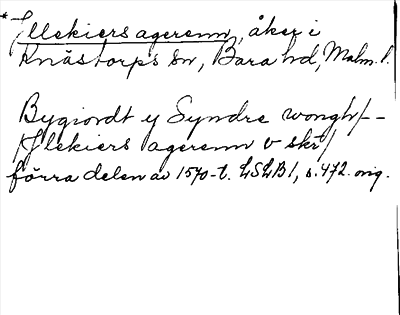 *Jllekiers agerenn, åker i
Knästorps sn, Bara hd, Malm. l.
Bygiordt y Syndre wongh/--
/Jlekiers agerenn v skr/
förra delen av 1570-t. LSLB 1, s. 472. orig.